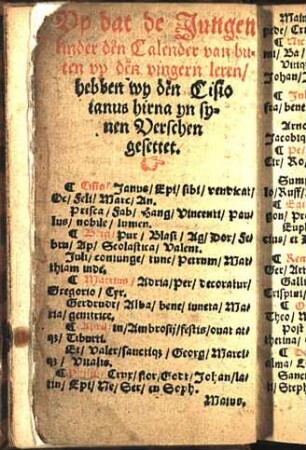 Vp dat de Jungen
kinder den Calender van bu-
ten vp den vingern leren/
hebben wy den Cisio
ianus hirna yn sy-
nen Verschen
gesettet.
¶ Cisio/ Janus/ Epi/ sibi/ vendicat/
Oc/ Feli/ Marc/ An.
Prisca/ Fab/ Hang/ Vincenti/ Pau-
lus/ nobile/ lumen.
¶ Bria/ Pur/ Blasi/ Ag/ Dor/ Fe-
bru/ Ap/ Scolastica/ Valent.
Juli/ coniunge/ tunc/ Petrum/ Mat-
thiam inde.
¶ Martius/ Adria/ Per/ decoratur/
Gregorio/ Cyr.
Gerdrudt/ Alba/ bene/ iuncta/ Ma-
ria/ genitrice.
¶ April/ in/ Ambrosij/ festis/ ouat at-
q3/ Tiburti.
Et/ Valer/ sanctiq3/ Georg/ Marci-
q3/ Vitalis.
¶ Philip/ Crux/ flor/ Gott/ Johan/ la-
tin/ Epi/ Ne/ Ser/ et Soph.
Maius.